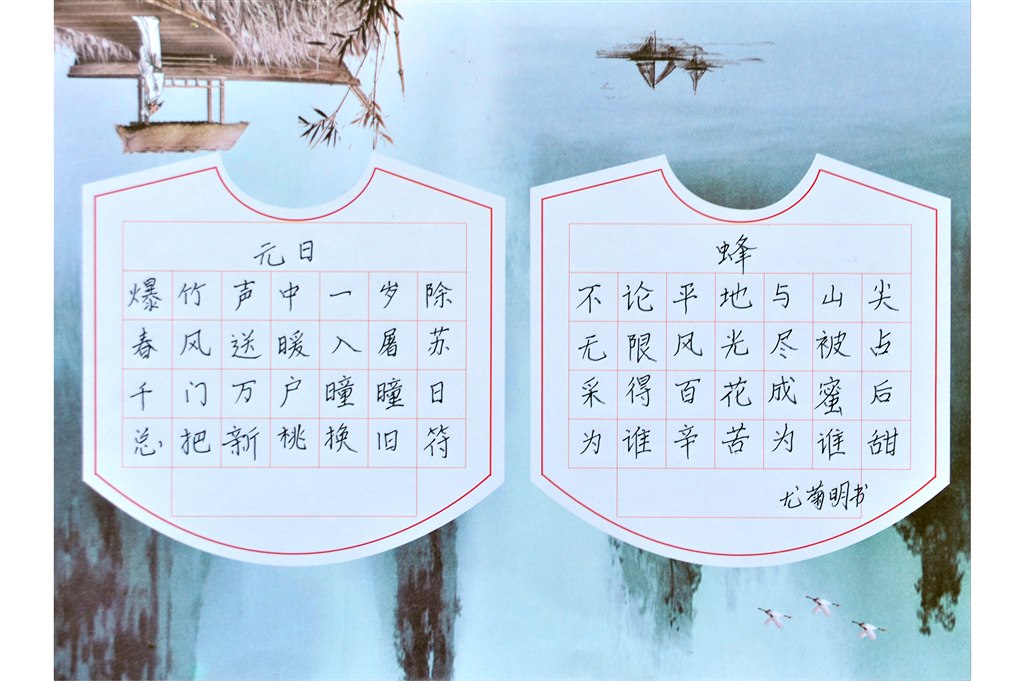 元日
爆竹声中一岁除
春风送暖入屠苏
千门万户瞳瞳日
总把新桃换旧符
蜂
不论平地与山尖
无限风光尽被占
采得百花成蜜后
为谁辛苦为谁甜
尤菊明书